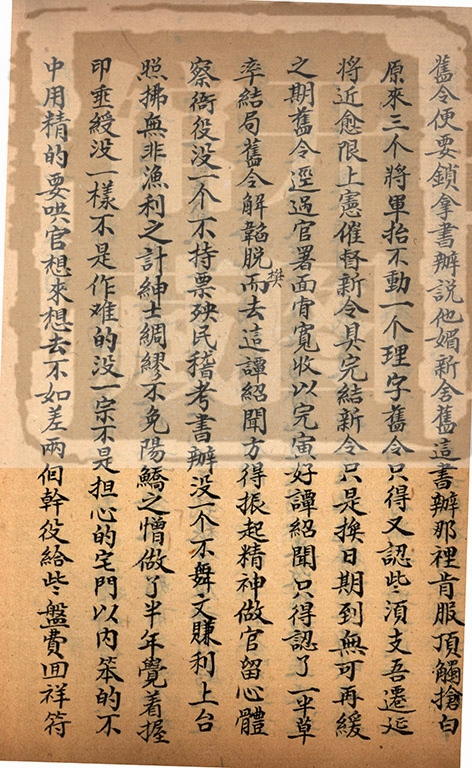 舊令便要鎖拿書辦說他媚新舍舊這書辦那裡肯服頂觸搶白
原來三个將軍抬不動一个理字舊令只得又認些湏支吾遷延
將近愈限上憲催督新令具完結新令只是挨日期到無可再緩
之期舊令逕過官署面肯寬收以完寅好譚紹聞只得認了一半草
率結局舊令解韜脱樊而去這譚紹聞方得振起精神做官留心體
察衙役没一个不持票殃民稽考書辦没一个不舞文賺利上台
照拂無非漁利之計紳士綢繆不免陽鱎之憎做了半年覺着握
印垂綬没一樣不是作难的没一宗不是担心的宅門以内笨的不
中用精的要哄官想來想去不如差兩個幹役給些盤費回祥符